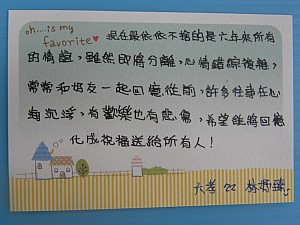 oh....is my
favorite♥
現在最依依不捨的是六年來所有
的情誼，雖然即將分離，心情錯綜複雜，
常常和好友一起回憶從前，許多往事在心
海沉浮，有歡樂也有悲傷，希望能將回憶
化成祝福送給所有人！
六孝 22 林妤臻